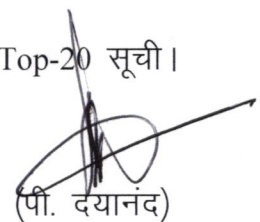 Top-20 सूची।
(पी. दयानंद)